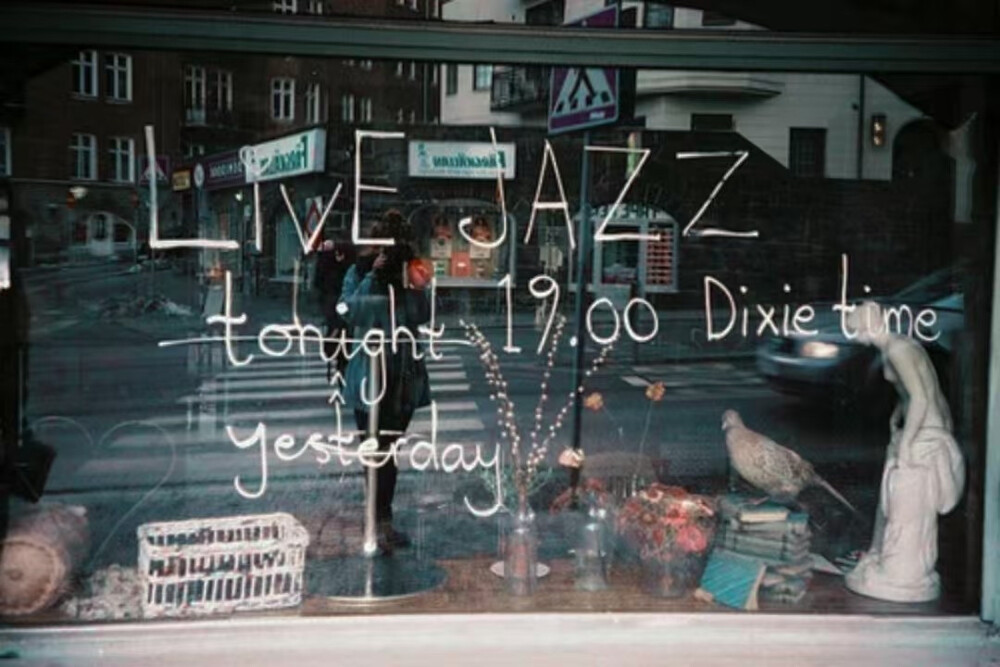 LivE JAZZ
tonight 19.00 Dixie time
yesterday